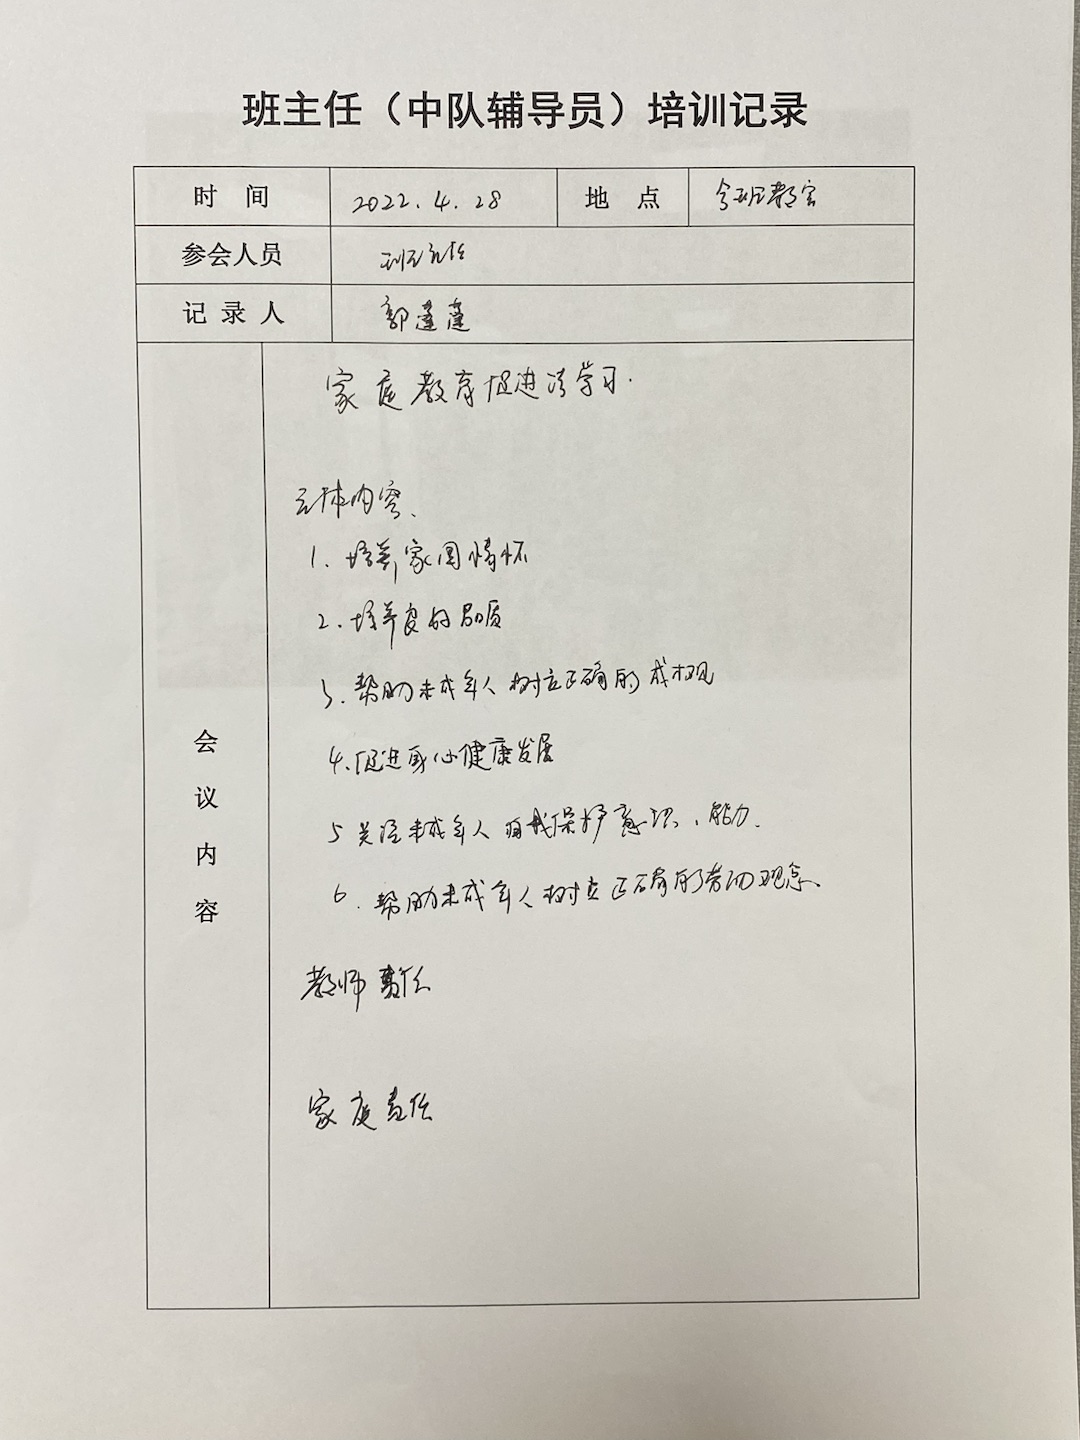 班主任（中队辅导员）培训记录
时 间 2022.4.28 地 点 各班教室
参会人员 班主任
记 录 人 郭蓬蓬
家庭教育促进法学习.
主体内容、
1. 培养家国情怀
2. 培养良好品质
3. 帮助未成年人树立正确的成才观
4. 促进身心健康发展
5 关注未成年人自我保护意识、能力.
6. 帮助未成年人树立正确的劳动观念、
教师责任
家庭责任
会议内容